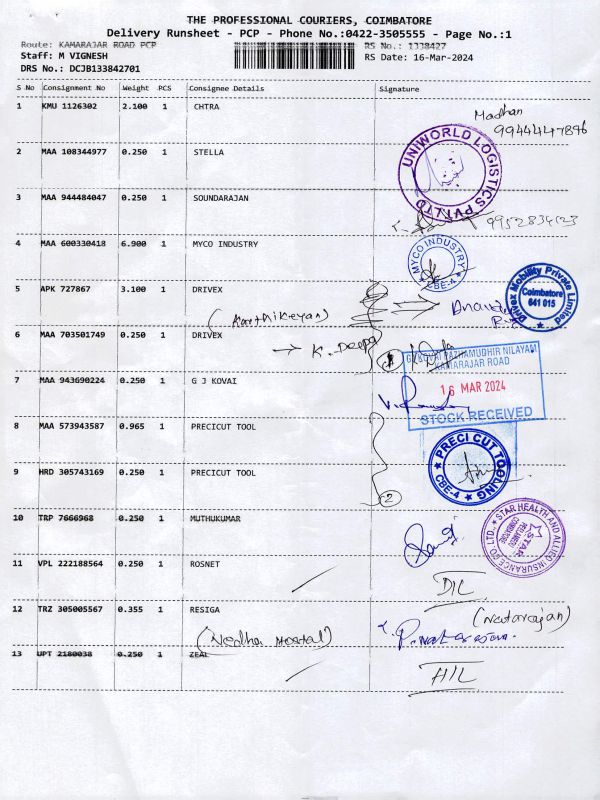 THE PROFESSIONAL COURIERS, COIMBATORE
Delivery Runsheet - PCP - Phone No.:0422-3505555 - Page No.:1
Route: KAMARAJAR ROAD PCP
RS No.: 1338427
Staff: M VIGNESH
RS Date: 16-Mar-2024
DRS No.: DCJB133842701
S No Consignment No Weight PCS Consignee Details Signature
1 KMU 1126302 2.100 1 CHTRA
Madhan
9944447896
2 MAA 108344977 0.250 1 STELLA
UNIWORLD LOGISTICS PVT LTD
3 MAA 944484047 0.250 1 SOUNDARAJAN
4 MAA 600330418 6.900 1 MYCO INDUSTRY
MYCO INDUSTRY
CBE-4
5 APK 727867 3.100 1 DRIVEX
(Karthikeyan)
Drivex Mobility Private Limited
Coimbatore
641 015
6 MAA 703501749 0.250 1 DRIVEX
K. Deepa
7 MAA 943690224 0.250 1 G J KOVAI
PAZHAMUDHIR NILAYAM
KAMARAJAR ROAD
16 MAR 2024
STOCK RECEIVED
8 MAA 573943587 0.965 1 PRECICUT TOOL
PRECI CUT TOOLING
CBE-4
9 HRD 305743169 0.250 1 PRECICUT TOOL
2
10 TRP 7666968 0.250 1 MUTHUKUMAR
STAR HEALTH AND ALLIED INSURANCE CO LTD.
11 VPL 222188564 0.250 1 ROSNET
D/L
12 TRZ 305005567 0.355 1 RESIGA
(Natarajan)
P. Natarajan
13 UPT 2180038 0.250 1 ZEAL
H/L